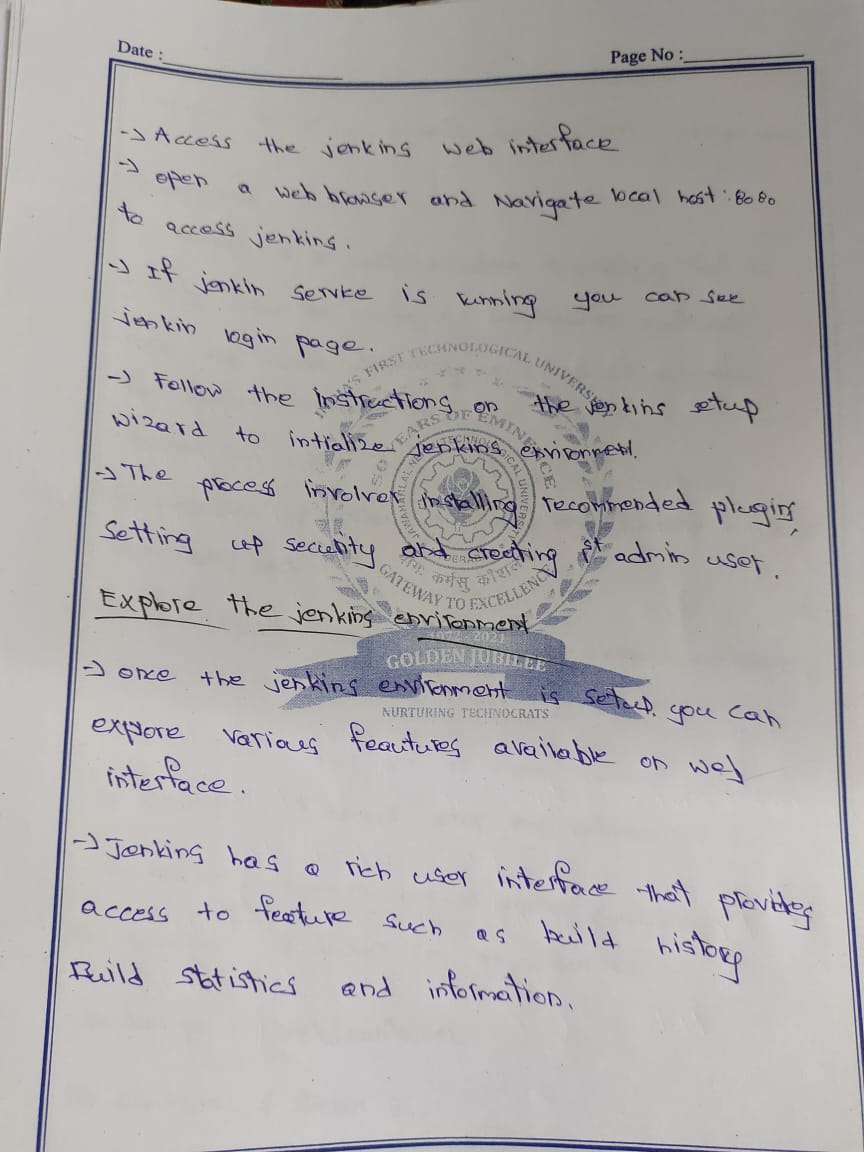 Date :
Page No :
-> Access the jenkins web interface
-> open a web browser and Navigate local host : 8080
to access jenkins.
-> If jenkin servke is running you can see
jenkin login page.
-> Follow the instructions on the jenkins setup
wizard to intialize jenkins environment.
-> The process involves installing recommended plugins,
Setting up security and creating 1st admin user.
Explore the jenkins environment
-> once the jenkins environment is setup. you can
expore various feautures available on web
interface.
-> Jenking has a rich user interface that provides
access to feature such as build history
Build statistics and information.
INDIA'S FIRST TECHNOLOGICAL UNIVERSITY
50 YEARS OF EMINENCE
GATEWAY TO EXCELLENCE
GOLDEN JUBILEE
NURTURING TECHNOCRATS